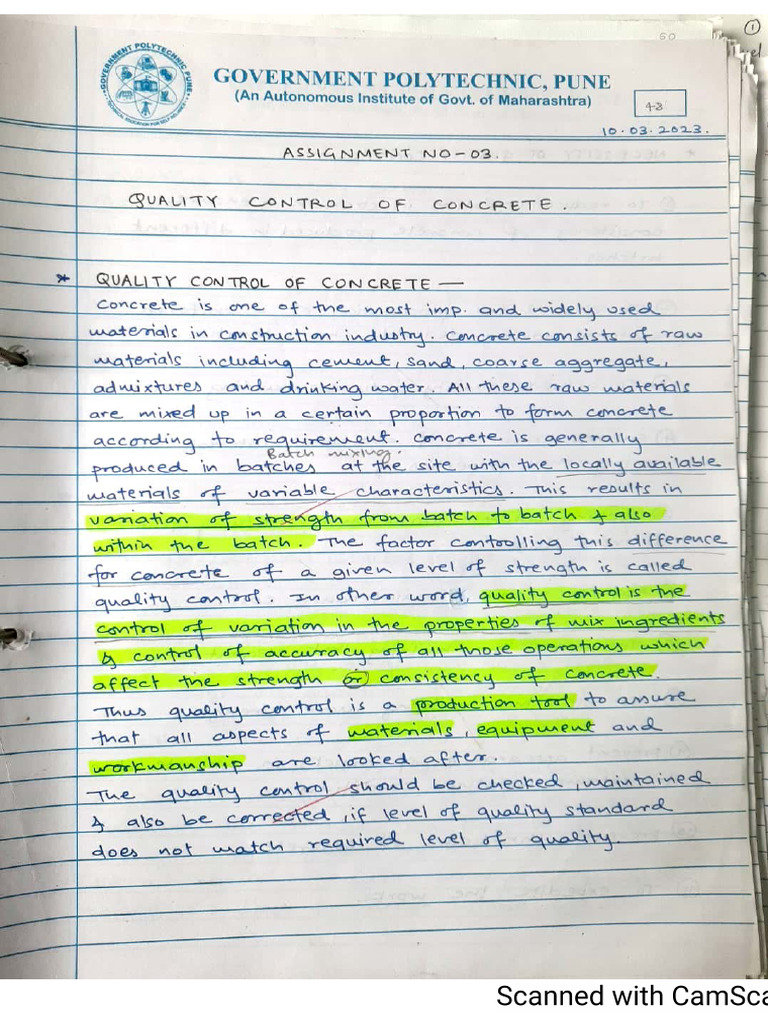 GOVERNMENT POLYTECHNIC, PUNE
(An Autonomous Institute of Govt. of Maharashtra)
43
10.03.2023.
ASSIGNMENT NO-03.
QUALITY CONTROL OF CONCRETE.
* QUALITY CONTROL OF CONCRETE —
Concrete is one of the most imp. and widely used
materials in construction industry. Concrete consists of raw
materials including cement, sand, coarse aggregate,
admixtures and drinking water. All these raw materials
are mixed up in a certain proportion to form concrete
according to requirement. Concrete is generally
Batch mixing.
produced in batches at the site with the locally available
materials of variable characteristics. This results in
variation of strength from batch to batch & also
within the batch. The factor controlling this difference
for concrete of a given level of strength is called
quality control. In other word, quality control is the
control of variation in the properties of mix ingredients
& control of accuracy of all those operations which
affect the strength or consistency of concrete.
Thus quality control is a production tool to assure
that all aspects of materials, equipment and
workmanship are looked after.
The quality control should be checked, maintained
& also be corrected, if level of quality standard
does not match required level of quality.
Scanned with CamSca